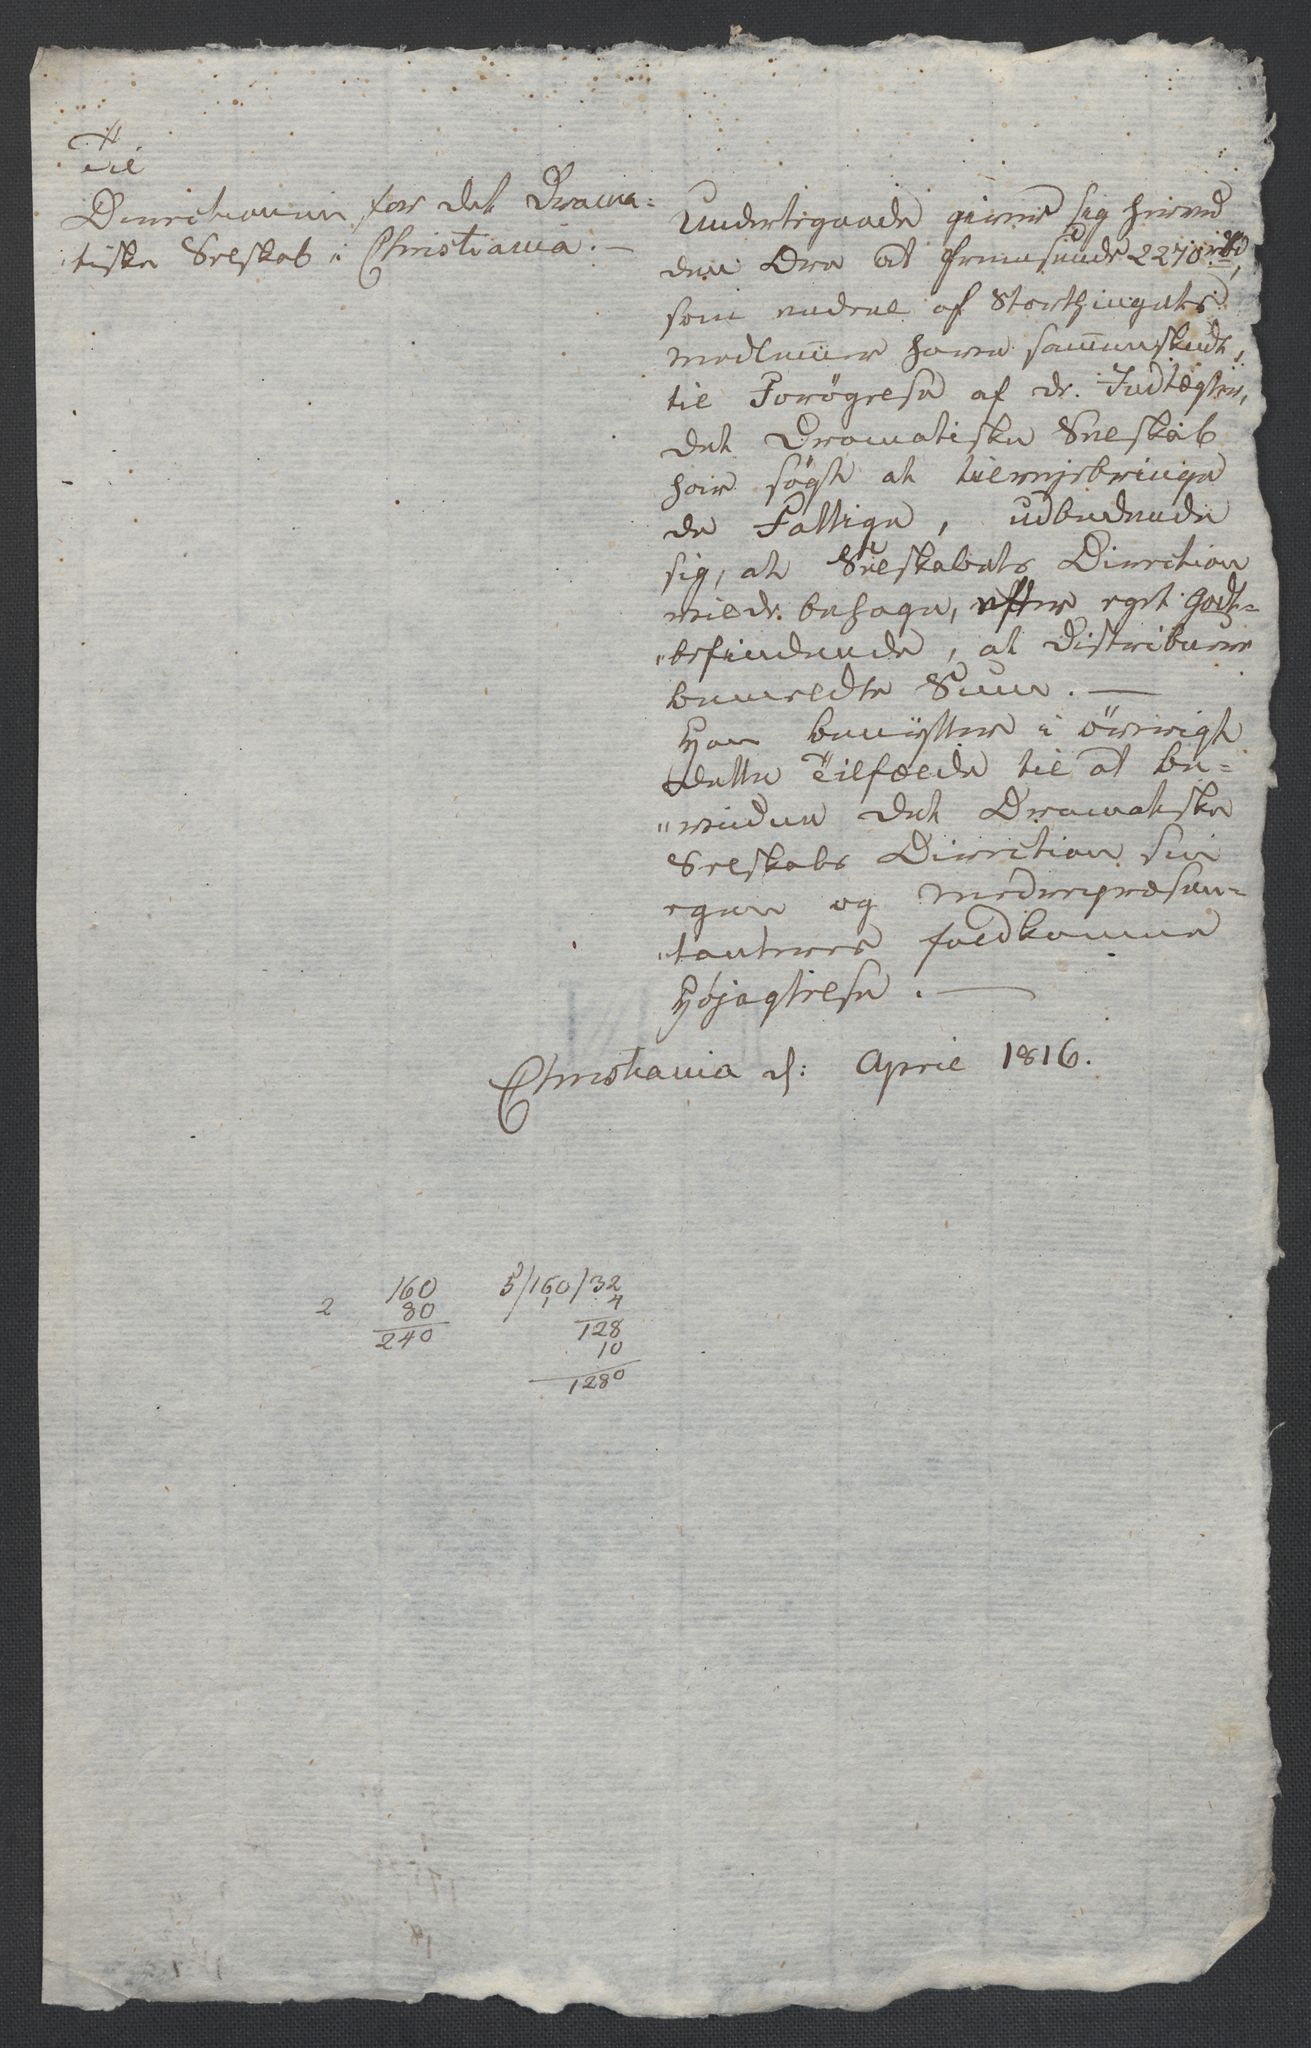 Til
Directionen for det Drama=
tiske Selskab i Christiania. —
Undertegnede giver sig herved
den Ære at fremsende 2270 rbd,
som endeel af Storthingets
Medlemmer have sammenskudt,
til Forøgelse af de Indtægter,
det Dramatiske Selskab
har søgt at tilvejebringe
de Fattige, udbedende
sig, at Selskabets Direction
vilde behage, efter eget Godt=
"befindende, at distribuere
bemeldte Sum. —
Han benÿtter i övrigt
dette Tilfælde til at be=
"vidne det Dramatiske
Selskabs Direction sin
egen og Medrepræsen=
"tanteres fuldkomne
Højagtelse. —
Christiania d: April 1816.
160 5/160/32
2 80 4
240 128
10
1280